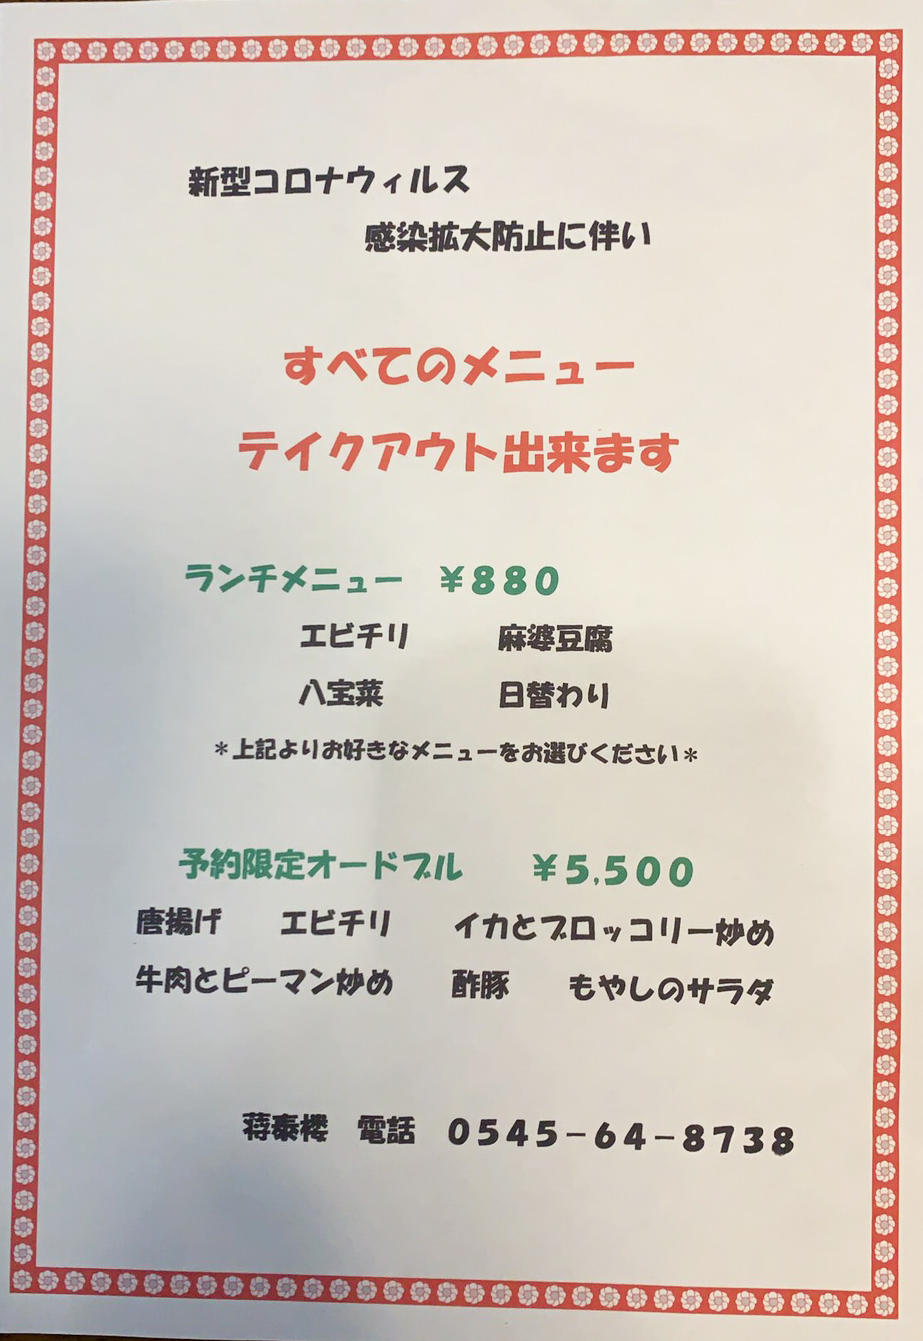 新型コロナウィルス
感染拡大防止に伴い
すべてのメニュー
テイクアウト出来ます
ランチメニュー ￥８８０
エビチリ 麻婆豆腐
八宝菜 日替わり
＊上記よりお好きなメニューをお選びください＊
予約限定オードブル ￥５,５００
唐揚げ エビチリ イカとブロッコリー炒め
牛肉とピーマン炒め 酢豚 もやしのサラダ
蒋泰楼 電話 ０５４５－６４－８７３８